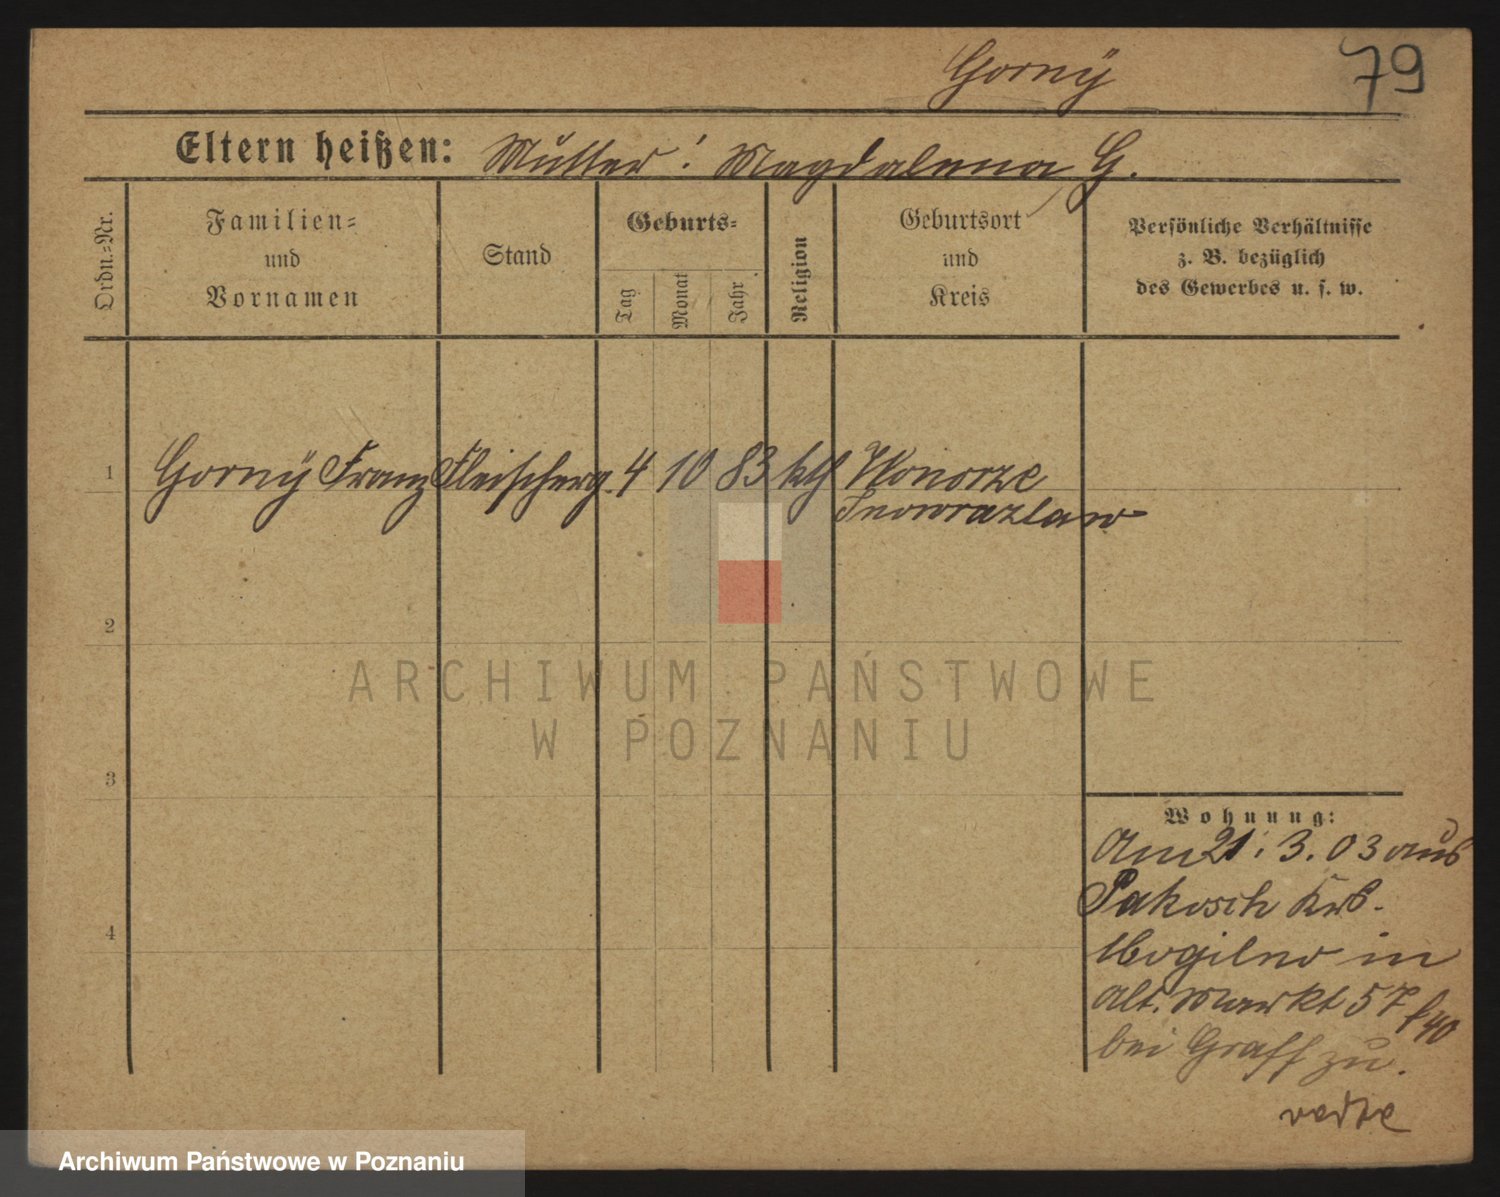 Gorny 79
Eltern heißen: Mutter: Magdalena G.
Ordn.-Nr.
Familien-
und
Vornamen
Stand
Geburts-
Tag
Monat
Jahr
Religion
Geburtsort
und
Kreis
Persönliche Verhältnisse
z. B. bezüglich
des Gewerbes u. s. w.
1 Gorny Franz Fleischerg. 4 10 83 kth Wonorze
Inowrazlaw
2
ARCHIWUM PAŃSTWOWE
W POZNANIU
3
Wohnung:
Am 21. 3. 03 aus
Pakosch Krs.
4
Mogilno in
Alt. Markt 57
bei Graff zu.
Archiwum Państwowe w Poznaniu